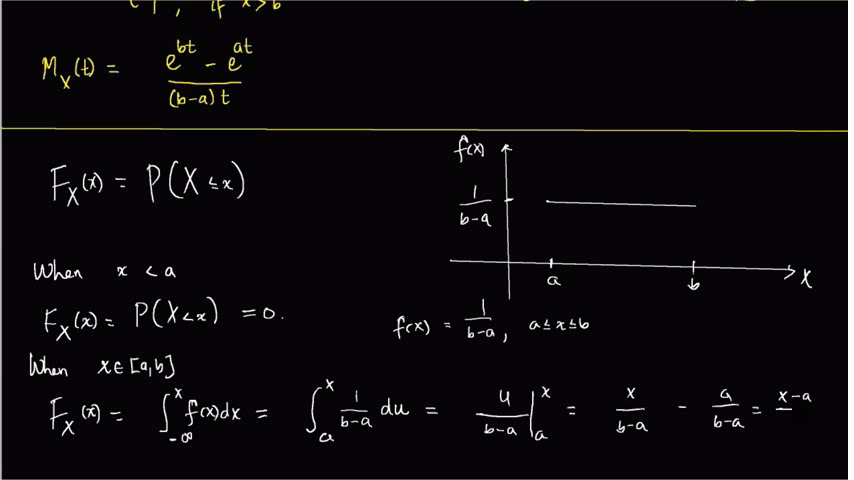 { 1 , if x > b
M_X(t) = (e^{bt} - e^{at}) / ((b-a)t)
F_X(x) = P(X ≤ x)
f(x)
1/(b-a)
a
b
X
When x < a
F_X(x) = P(X < x) = 0.
f(x) = 1/(b-a), a ≤ x ≤ b
When x ∈ [a,b]
F_X(x) = ∫_{-∞}^{x} f(x)dx = ∫_{a}^{x} 1/(b-a) du = u/(b-a) |_{a}^{x} = x/(b-a) - a/(b-a) = x-a